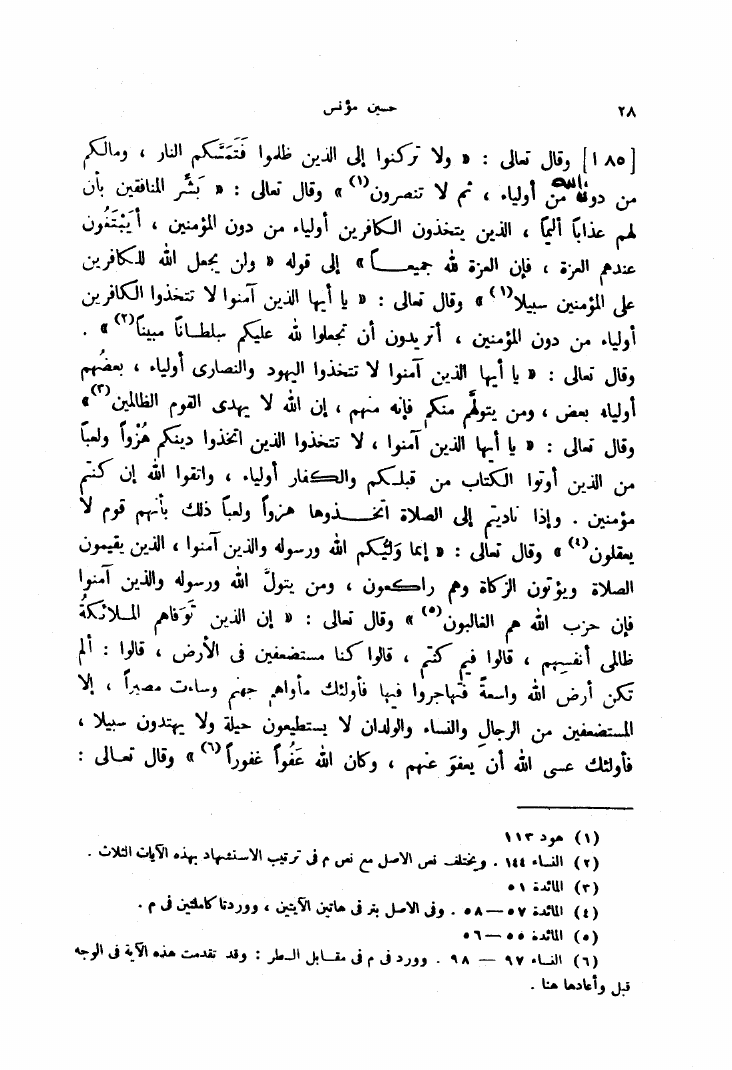 ٢٨
حسين مؤنس
[١٨٥] وقال تعالى : « ولا تركنوا إلى الذين ظلموا فَتَمَسَّكم النار ، ومالكم
من دون الله من أولياء ، ثم لا تنصرون(١) » وقال تعالى : « بَشِّر المنافقين بأن
لهم عذاباً أليماً ، الذين يتخذون الكافرين أولياء من دون المؤمنين ، أَيَبْتَغُون
عندهم العزة ، فإن العزة لله جميعــاً » إلى قوله « ولن يجعل الله للكافرين
على المؤمنين سبيلا(١) » وقال تعالى : « يا أيها الذين آمنوا لا تتخذوا الكافرين
أولياء من دون المؤمنين ، أتريدون أن تجعلوا لله عليكم سلطـاناً مبيناً(٢) » .
وقال تعالى : « يا أيها الذين آمنوا لا تتخذوا اليهود والنصارى أولياء ، بعضُهم
أولياء بعض ، ومن يتولهَّم منكم فإنه منهم ، إن الله لا يهدى القوم الظالمين(٣) »
وقال تعالى : « يا أيها الذين آمنوا ، لا تتخذوا الذين اتخذوا دينكم هُزْواً ولعباً
من الذين أوتوا الكتاب من قبلـكم والـكفار أولياء ، واتقوا الله إن كنتم
مؤمنين . وإذا ناديتم إلى الصلاة اتخـــذوها هزواً ولعباً ذلك بأنهم قوم لا
يعقلون(٤) » وقال تعالى : « إنما وَلِيُّكم الله ورسوله والذين آمنوا ، الذين يقيمون
الصلاة ويؤتون الزكاة وهم راكـعون ، ومن يتولَّ الله ورسوله والذين آمنوا
فإن حزب الله هم الغالبون(٥) » وقال تعالى : « إن الذين تَوَفاهم المـلائكةُ
ظالمى أنفسِهم ، قالوا فيم كنتم ، قالوا كنا مستضعفين فى الأرض ، قالوا : ألم
تكن أرض الله واسعةً فتهاجروا فيها فأولئك مأواهم جهنم وساءت مصيراً ، إلا
المستضعفين من الرجالِ والنساء والولدان لا يستطيعون حيلة ولا يهتدون سبيلا ،
فأولئك عسى الله أن يعفوَ عنهم ، وكان الله عَفُواً غفوراً(٦) » وقال تعـالى :
(١) هود ١١٣
(٢) النساء ١٤٤ . ويختلف نص الاصل مع نص م فى ترتيب الاستشهاد بهذه الآيات الثلاث .
(٣) المائدة ٥١
(٤) المائدة ٥٧ — ٥٨ . وفى الاصل بتر فى هاتين الآيتين ، ووردتا كاملتين فى م .
(٥) المائدة ٥٥ — ٥٦
(٦) النساء ٩٧ — ٩٨ . وورد فى م فى مقـابل السطر : وقد تقدمت هذه الآية فى الوجه
قبل وأعادها هنا .